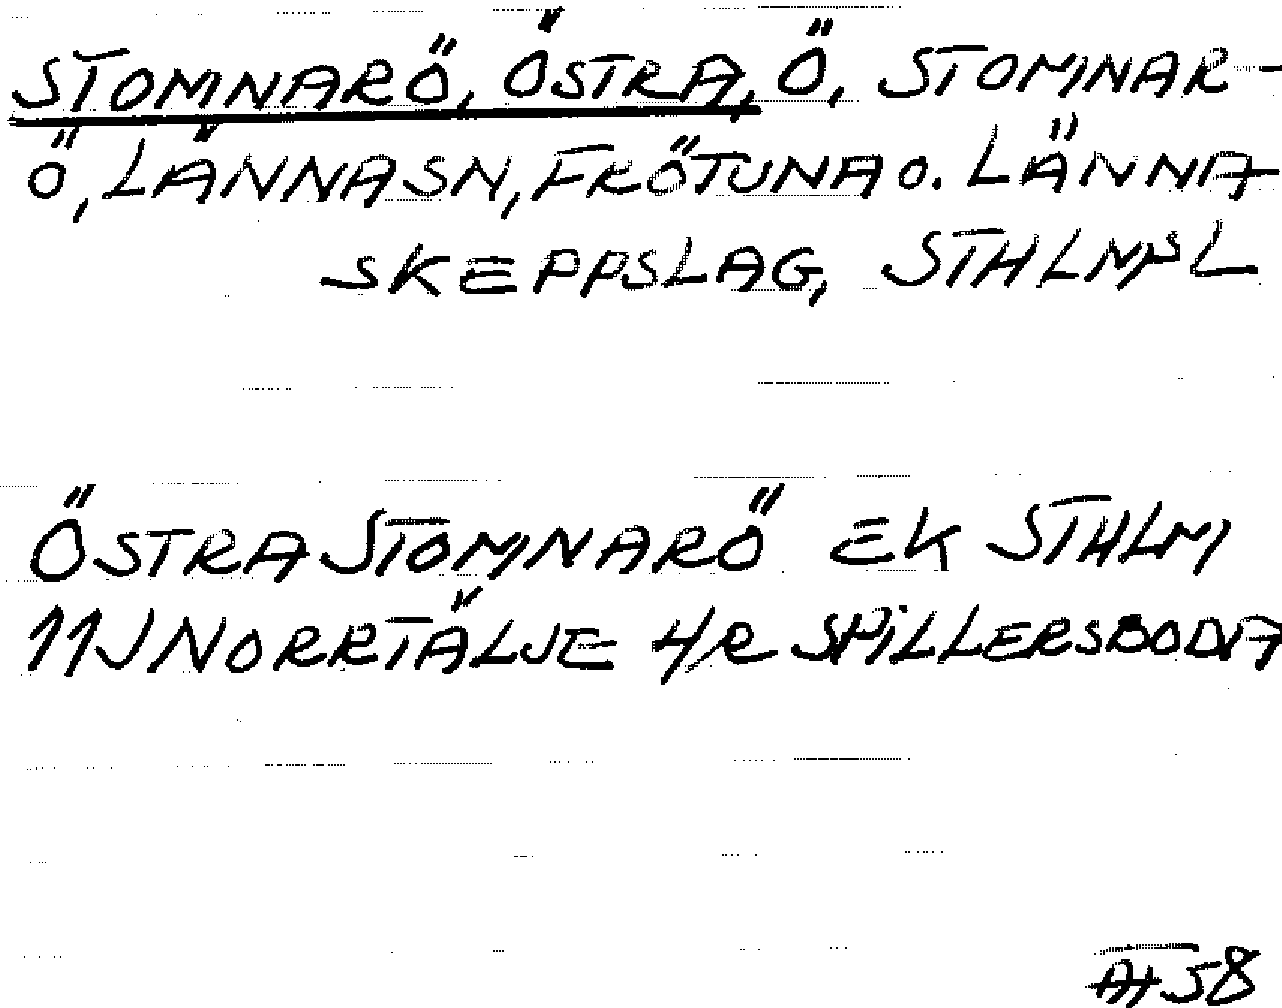 STOMNARÖ, ÖSTRA, Ö, STOMNAR-
Ö, LÄNNA SN, FRÖTUNA O. LÄNNA
SKEPPSLAG, STHLMS L
ÖSTRA STOMNARÖ EK STHLM
11J NORRTÄLJE 4/R SPILLERSBODA
58